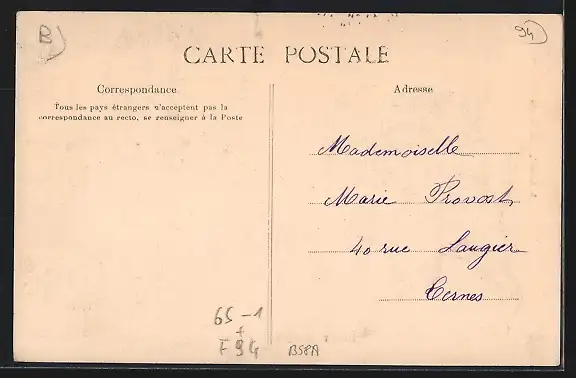 B
94
CARTE POSTALE
Correspondance
Tous les pays étrangers n'acceptent pas la
correspondance au recto, se renseigner à la Poste
Adresse
Mademoiselle
Marie Provost
40 rue Laugier
Ternes
65-1
+
F 94
BSPA